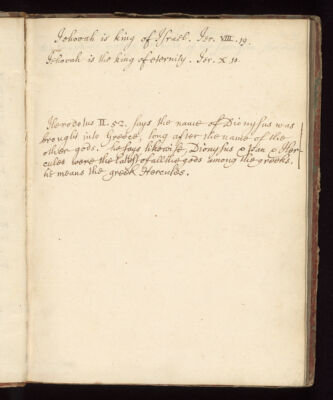 Jehovah is king of Israel. Jer. VIII. 19.
Jehovah is the king of eternity. Jer. X 10.
Herodotus II. 52. says the name of Dionysus was
brought into Greece, long after the name of the
other gods. he says likewise, Dionysus & Pan & Her-
cules were the latest of all the gods among the greeks.
he means the greek Hercules.